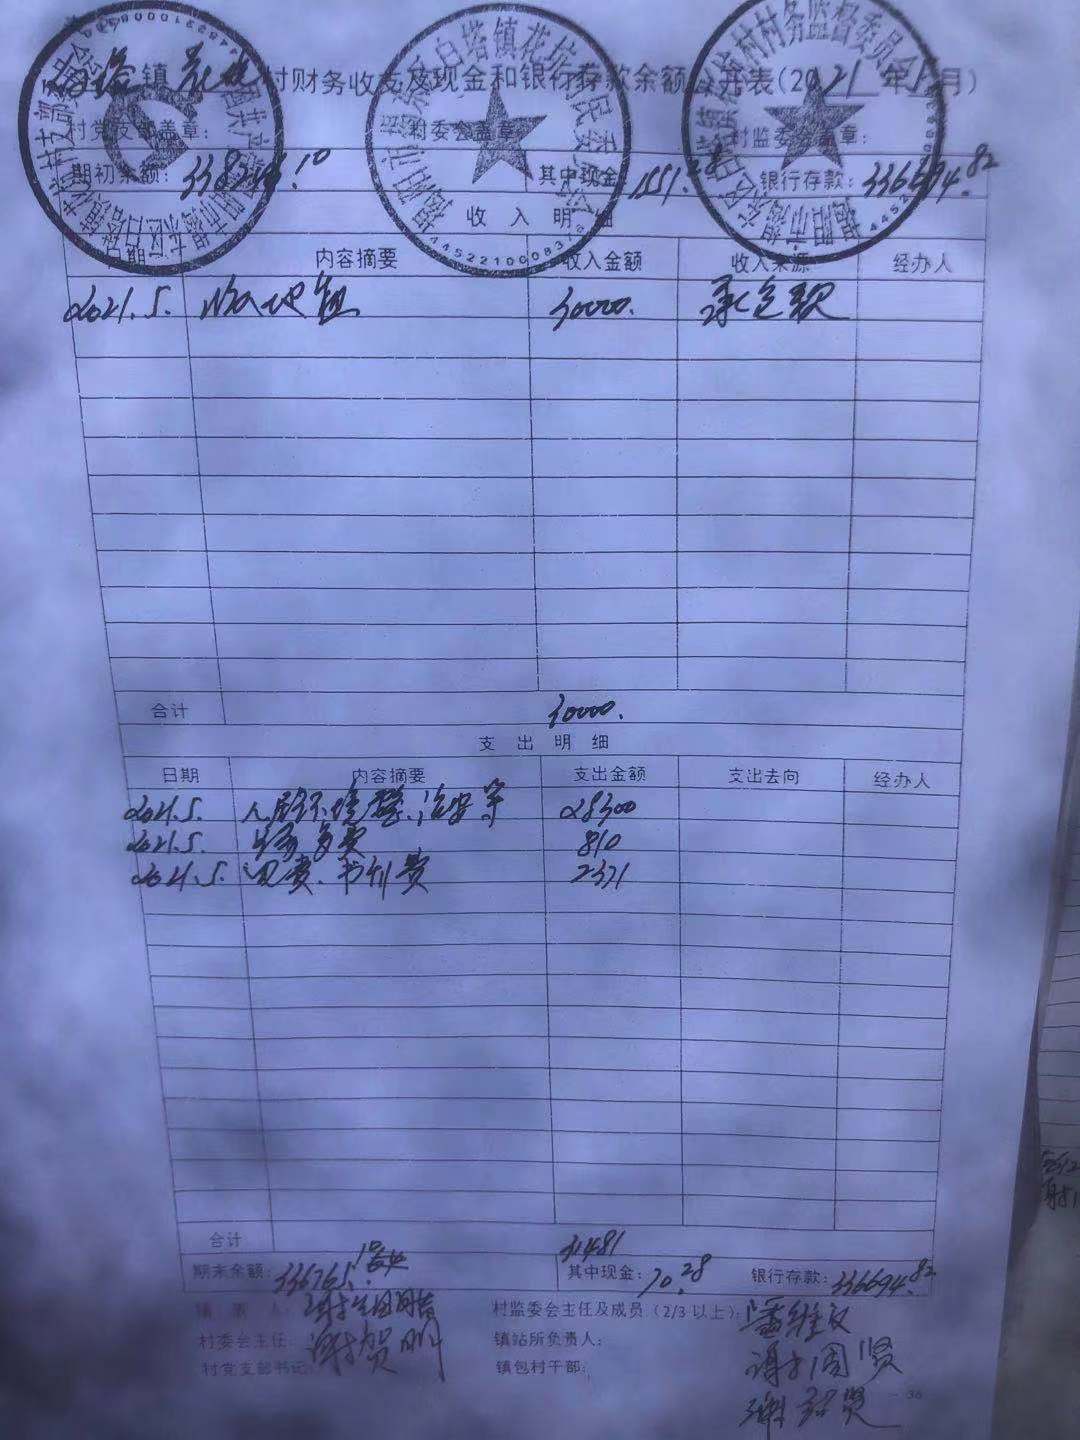 白塔镇花坑村财务收支及现金和银行存款余额公开表(2021年5月)
村党支部盖章: 村委会盖章: 村监委会盖章:
期初余额: 338246.10 其中现金: 1551.28 银行存款: 336694.82
收入明细
日期 内容摘要 收入金额 收入来源 经办人
2021.5. 收入地租 30000. 承包款
合计 30000.
支出明细
日期 内容摘要 支出金额 支出去向 经办人
2021.5. 人居环境整治安等 28300
2021.5. 务费 810
2021.5. 费、书刊费 2371
合计 31481
期末余额: 336765.10 其中现金: 70.28 银行存款: 336694.82
村监委会主任及成员(2/3以上): 潘维
村委会主任: 谢贺 镇站所负责人:
村党支部书记: 镇包村干部: 谢周贤
谢贤
- 36